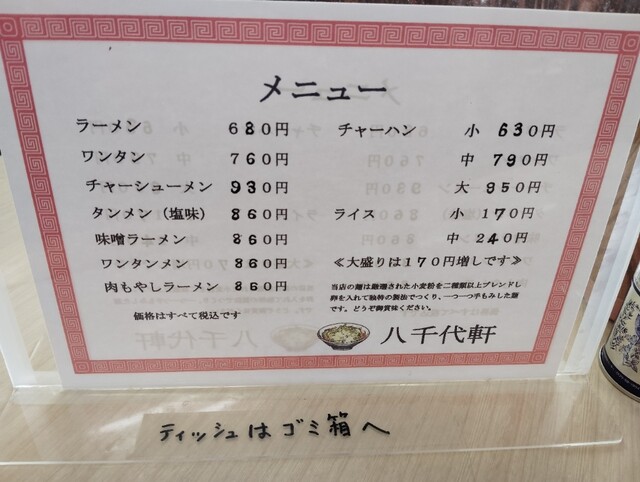 メニュー
ラーメン 680円
ワンタン 760円
チャーシューメン 930円
タンメン(塩味) 860円
味噌ラーメン 860円
ワンタンメン 860円
肉もやしラーメン 860円
価格はすべて税込です
チャーハン 小 630円
中 790円
大 950円
ライス 小 170円
中 240円
≪大盛りは170円増しです≫
当店の麺は厳選された小麦粉を二種類以上ブレンドし
卵を入れて独特の製法でつくり、一つ一つ手もみした麺
です。どうぞ御賞味ください。
八千代軒
ティッシュはゴミ箱へ